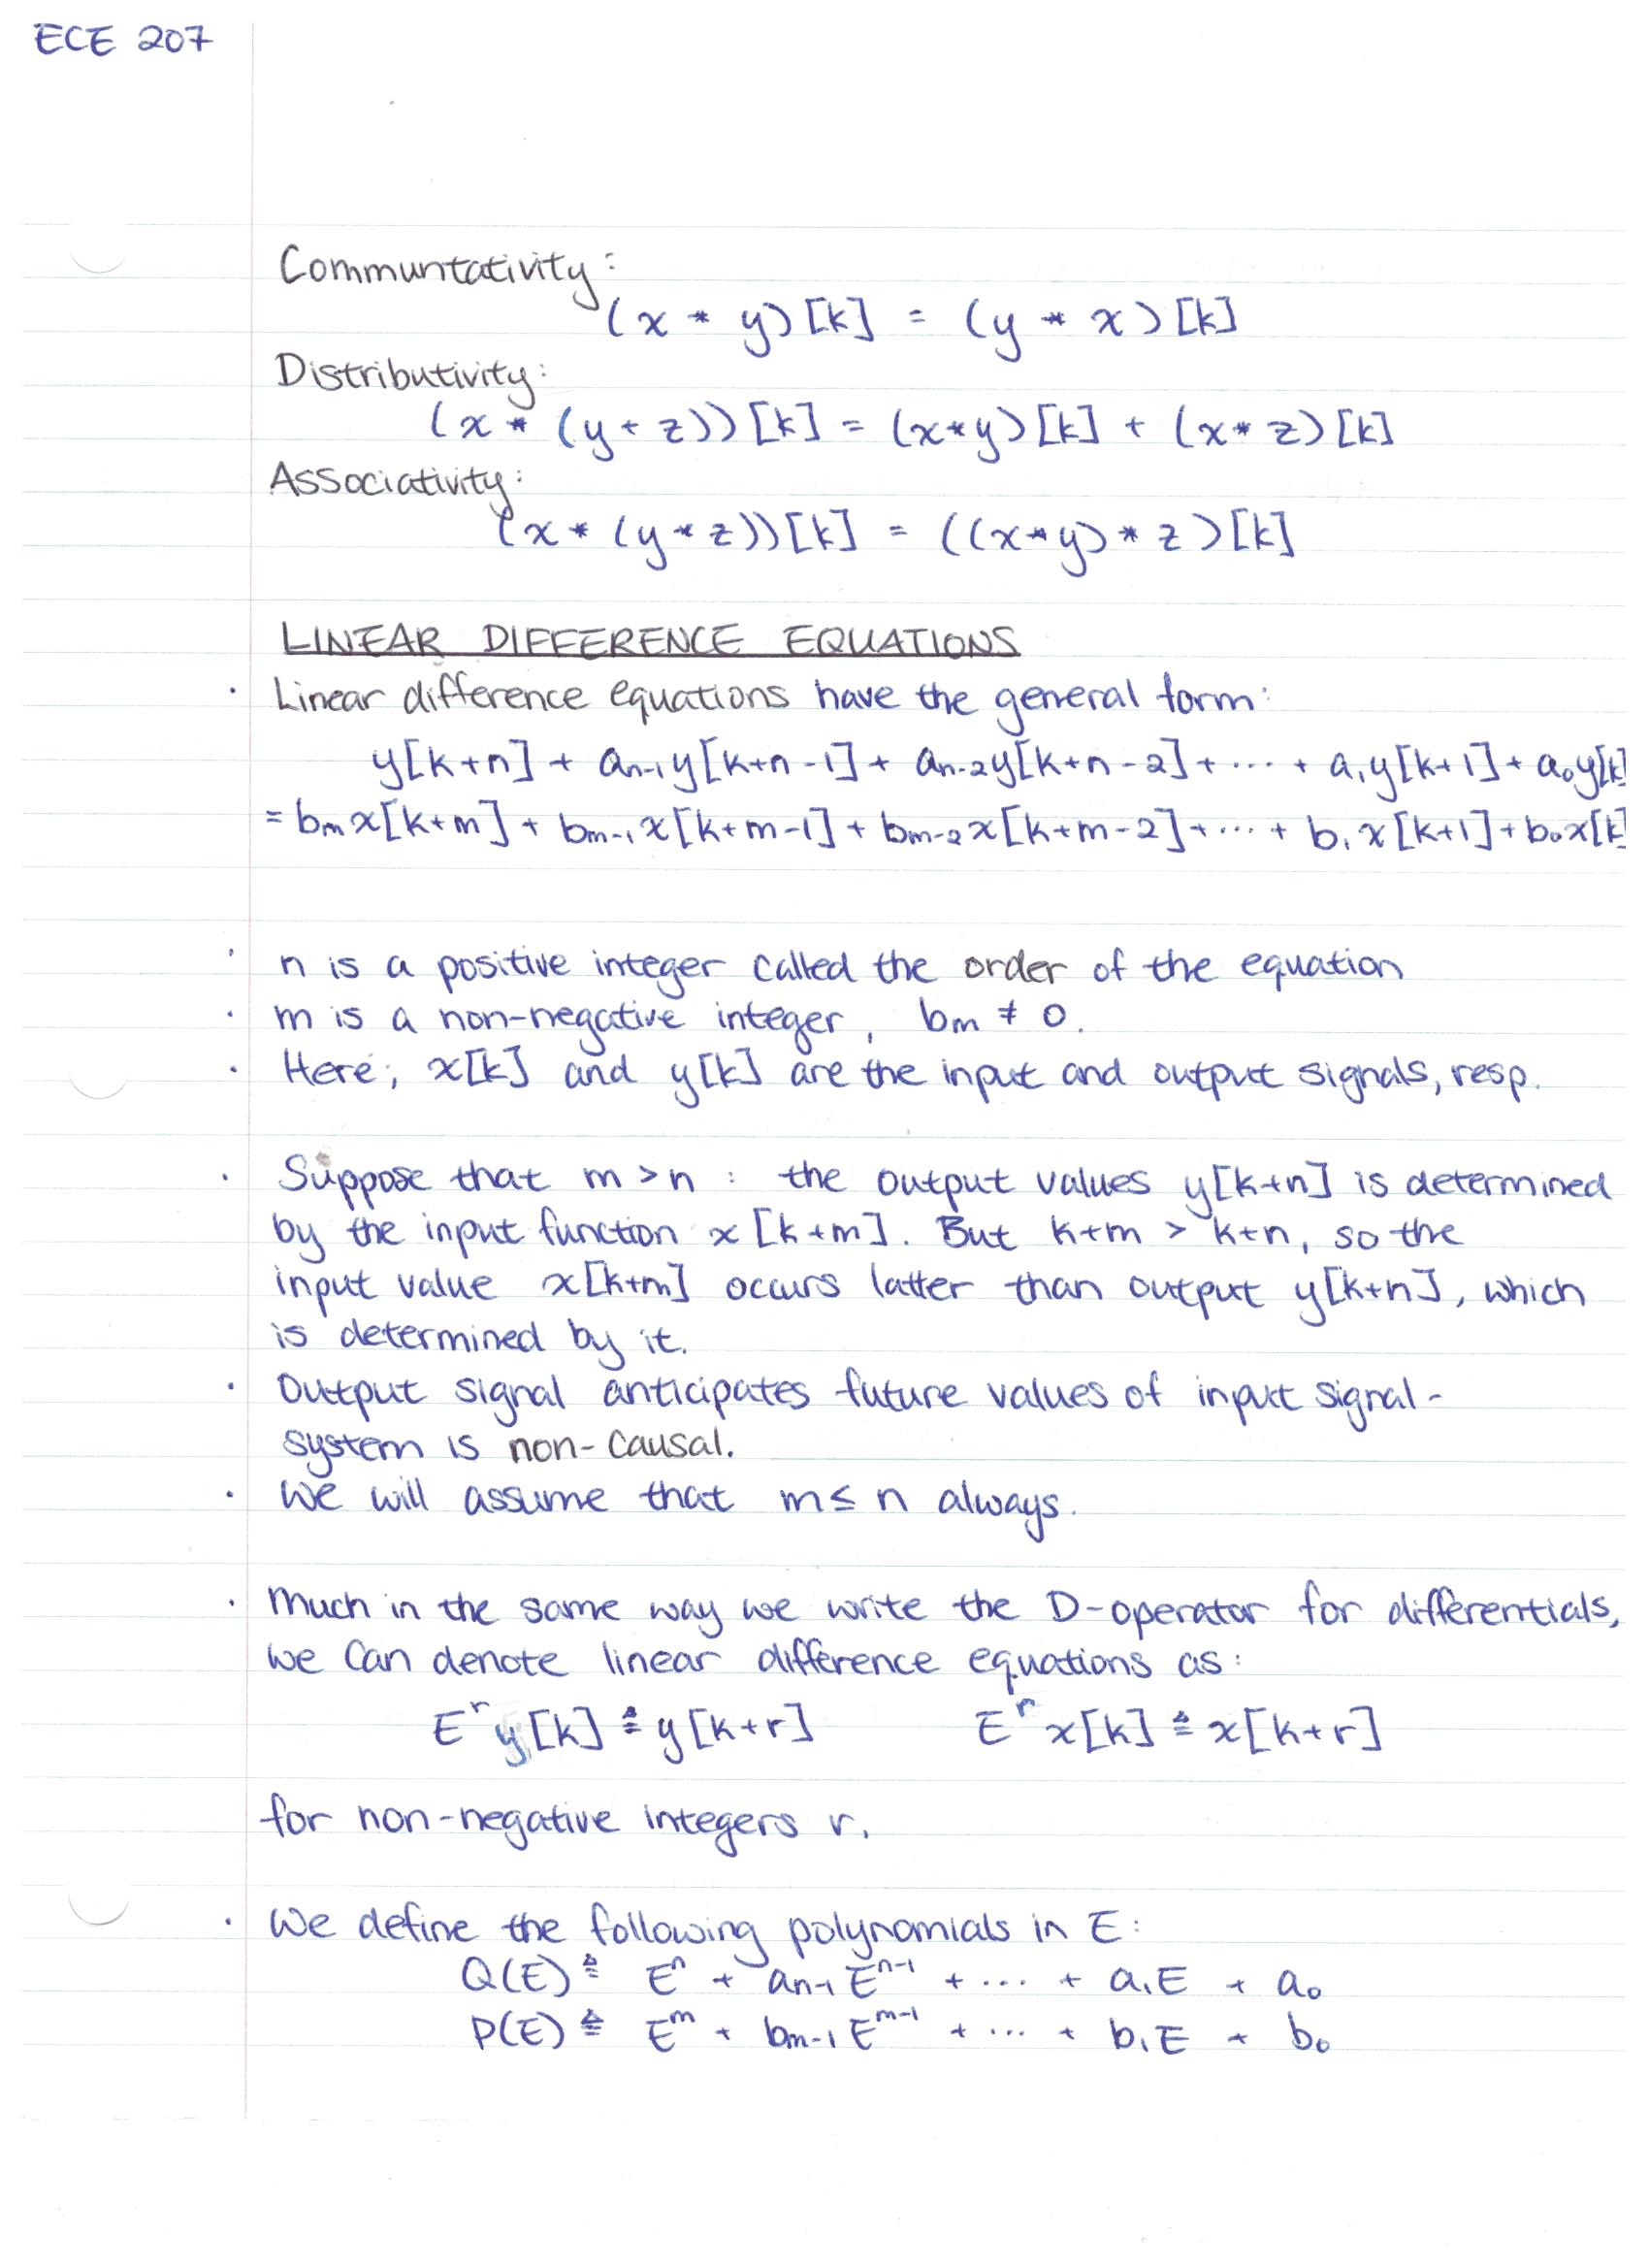 ECE 207
Communtativity:
(x * y)[k] = (y * x)[k]
Distributivity:
(x * (y + z))[k] = (x*y)[k] + (x*z)[k]
Associativity:
(x * (y * z))[k] = ((x*y) * z)[k]
LINEAR DIFFERENCE EQUATIONS
· Linear difference equations have the general form:
y[k+n] + aₙ₋₁y[k+n-1] + aₙ₋₂y[k+n-2] + ··· + a₁y[k+1] + a₀y[k]
= bₘx[k+m] + bₘ₋₁x[k+m-1] + bₘ₋₂x[k+m-2] + ··· + b₁x[k+1] + b₀x[k]
· n is a positive integer called the order of the equation
· m is a non-negative integer, bₘ ≠ 0.
· Here, x[k] and y[k] are the input and output signals, resp.
· Suppose that m > n : the output values y[k+n] is determined
by the input function x[k+m]. But k+m > k+n, so the
input value x[k+m] occurs latter than output y[k+n], which
is determined by it.
· Output signal anticipates future values of input signal -
system is non-causal.
· We will assume that m ≤ n always.
· Much in the same way we write the D-operator for differentials,
we can denote linear difference equations as:
Eʳy[k] ≜ y[k+r] Eʳx[k] ≜ x[k+r]
for non-negative integers r.
· We define the following polynomials in E:
Q(E) ≜ Eⁿ + aₙ₋₁Eⁿ⁻¹ + ··· + a₁E + a₀
P(E) ≜ Eᵐ + bₘ₋₁Eᵐ⁻¹ + ··· + b₁E + b₀